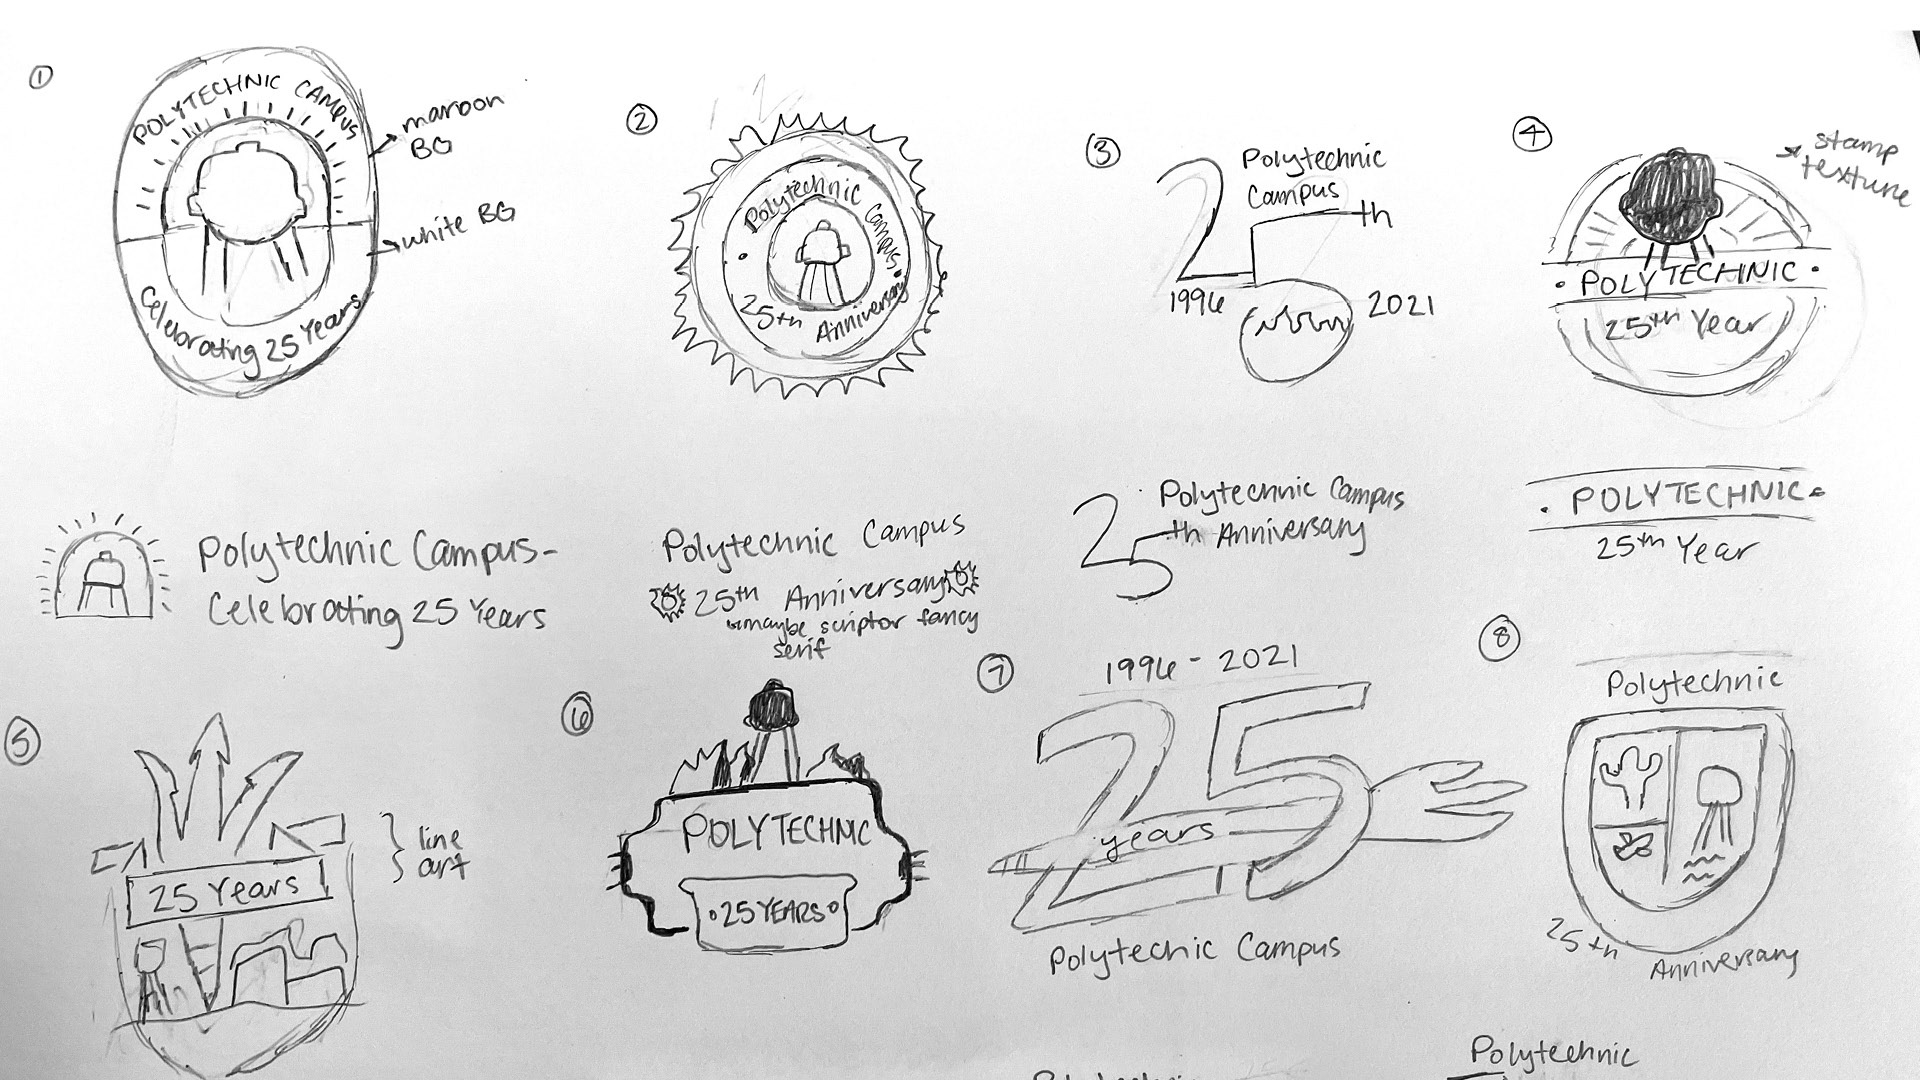 ①
POLYTECHNIC CAMPUS
Celebrating 25 Years
maroon
BG
white BG
Polytechnic Campus-
Celebrating 25 Years
②
Polytechnic Campus
25th Anniversary
Polytechnic Campus
25th Anniversary
maybe script or fancy
serif
③
25th
Polytechnic
Campus
1996
2021
25
Polytechnic Campus
th Anniversary
④
stamp
texture
POLYTECHNIC
25th Year
POLYTECHNIC
25th Year
⑤
25 Years
line
art
⑥
POLYTECHNIC
25 YEARS
⑦
1996 - 2021
25
years
Polytechic Campus
⑧
Polytechnic
25th
Anniversary
Polytechnic